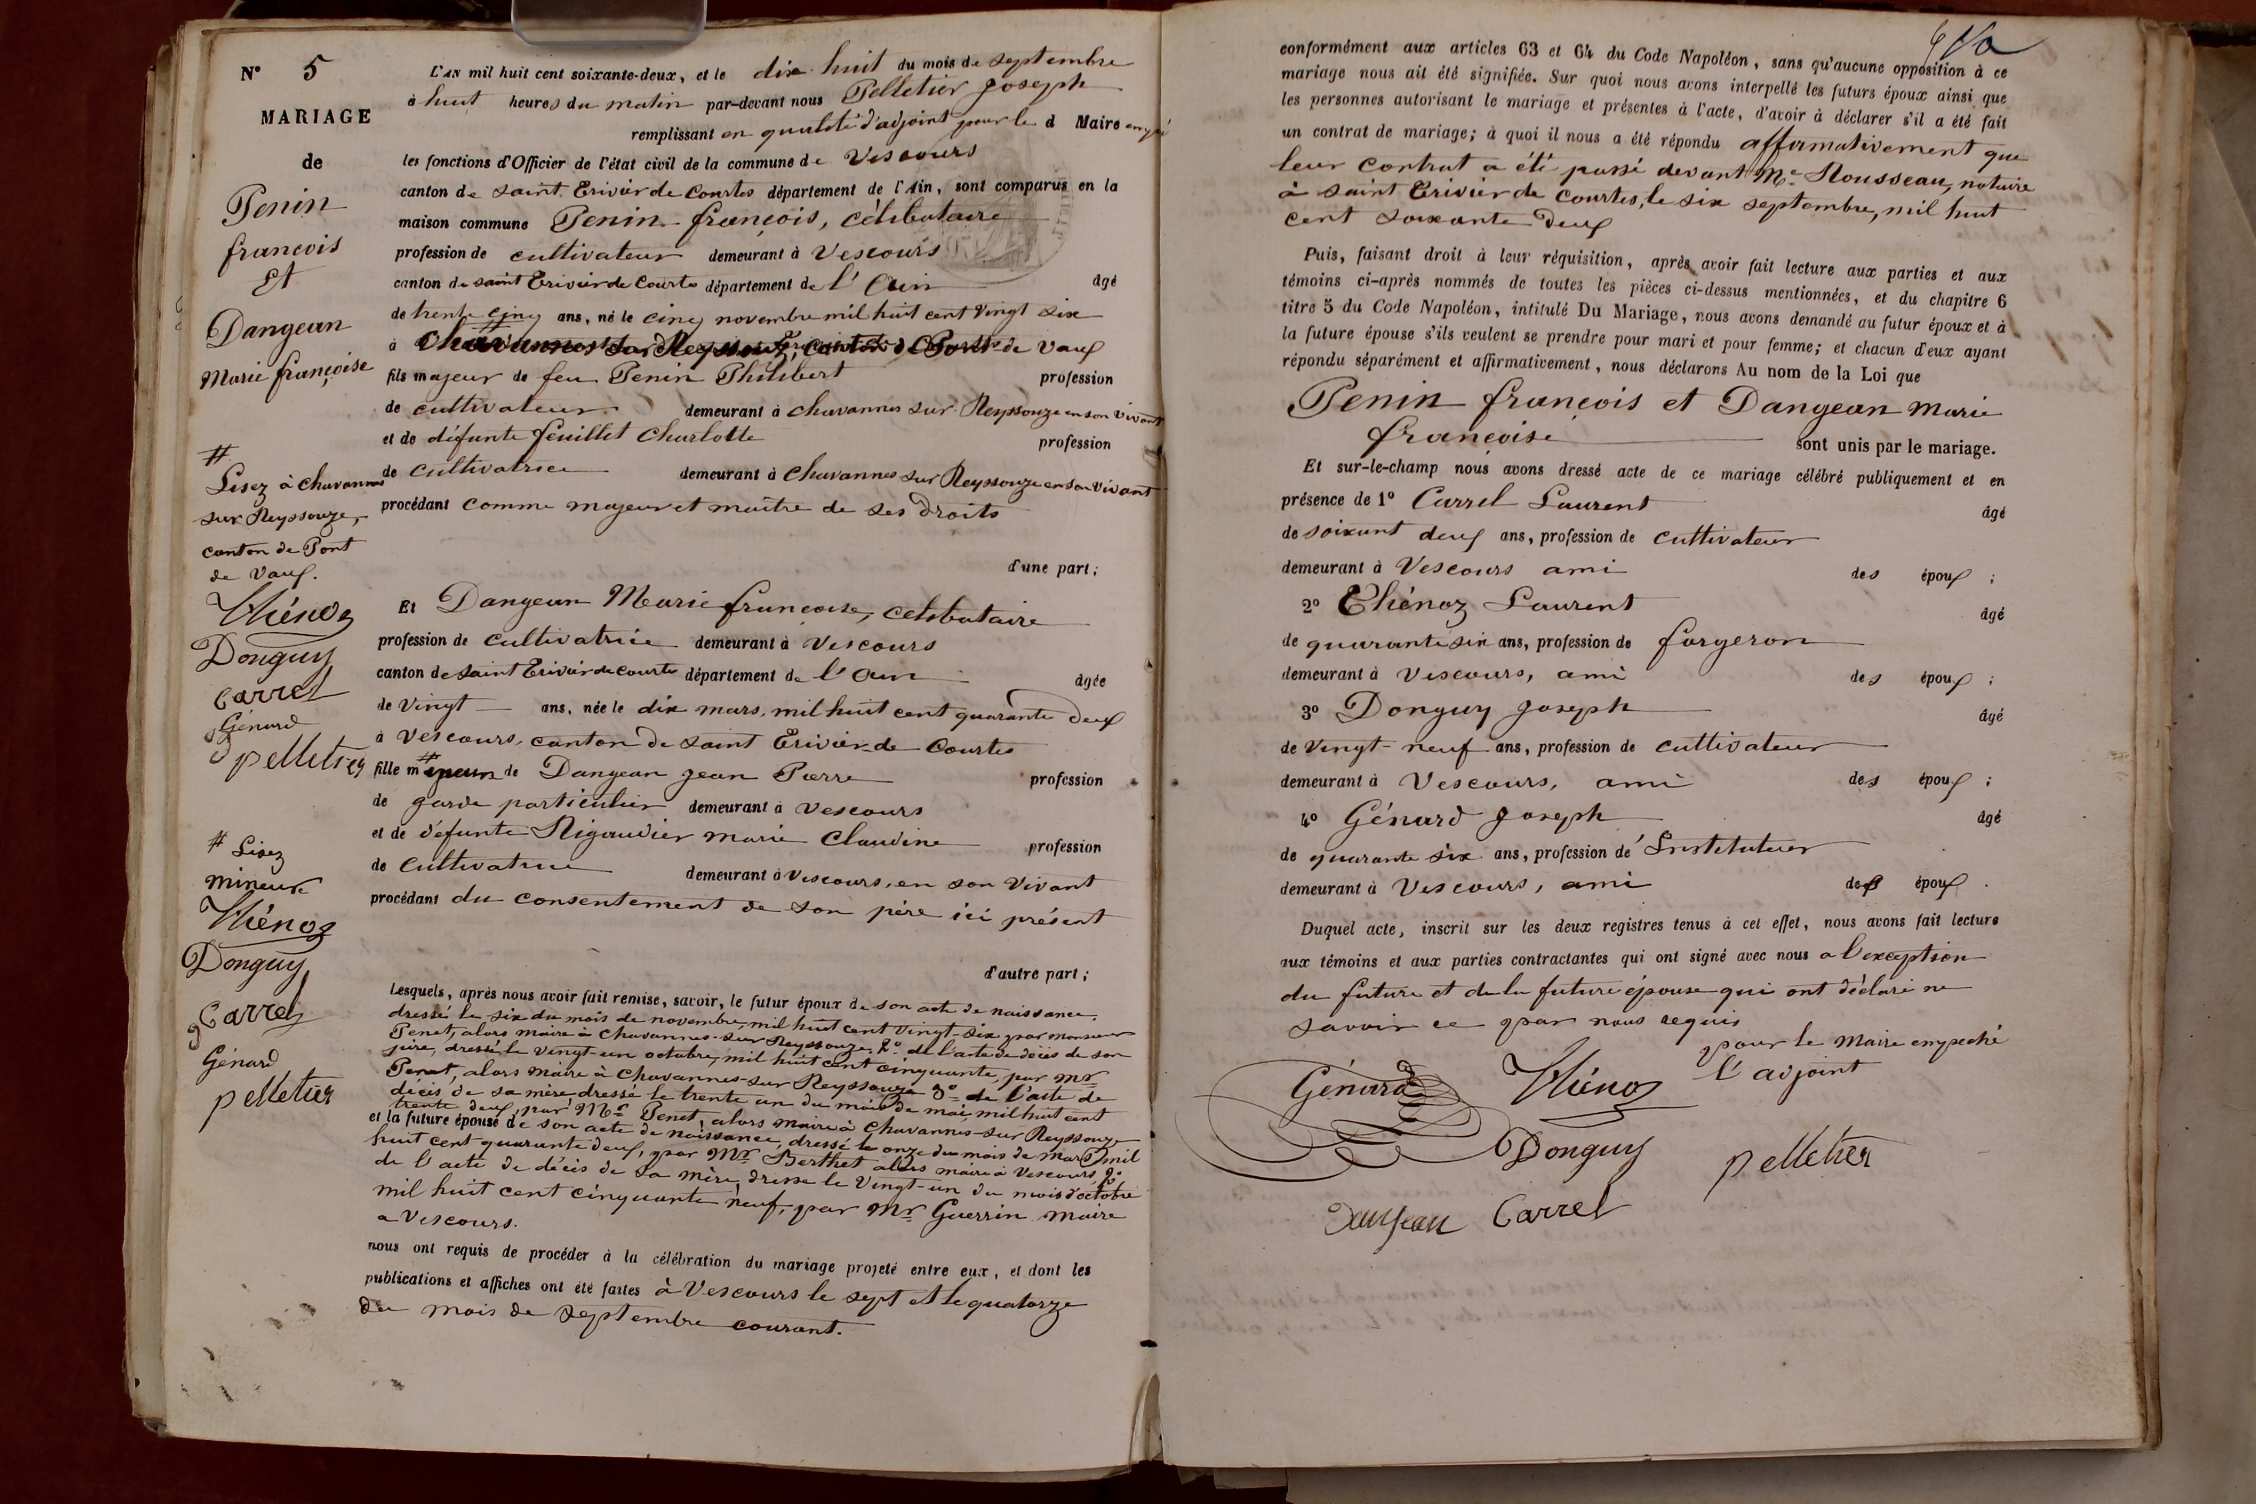 N° 5
MARIAGE
de
Penin
françois
Et
Dangean
Marie françoise
#
Lisez à chavannes
sur Reyssouze,
canton de Pont
de Vaux.
Thénoz
Donguy
Carrel
Génard
Pelletier
# Lisez
mineure
Thénoz
Donguy
Carrel
Génard
Pelletier
L'AN mil huit cent soixante-deux, et le dix huit du mois de septembre
à huit heures du matin par-devant nous Pelletier Joseph
remplissant en qualité d'adjoint pour le d Maire
les fonctions d'Officier de l'état civil de la commune de Vescours
canton de saint Trivier de Courtes département de l'Ain, sont comparus en la
maison commune Penin françois, célibataire
profession de cultivateur demeurant à Vescours
canton de saint Trivier de Courtes département de l'Ain âgé
de trente cinq ans, né le cinq novembre mil huit cent vingt six
à Chavannes sur Reyssouze, canton de Pont de Vaux
fils majeur de feu Penin Philibert profession
de cultivateur demeurant à chavannes sur Reyssouze en son vivant
et de défunte feuillet Charlotte profession
de cultivatrice demeurant à Chavannes sur Reyssouze en son vivant
procédant comme majeur et maître de ses droits
d'une part;
Et Dangean Marie françoise, célibataire
profession de cultivatrice demeurant à Vescours
canton de saint Trivier de Courtes département de l'Ain âgée
de vingt ans, née le dix mars, mil huit cent quarante deux
à Vescours, canton de saint Trivier de Courtes
fille m# de Dangean Jean Pierre profession
de garde particulier demeurant à Vescours
et de défunte Rigaudier marie Claudine profession
de cultivatrice demeurant à Vescours, en son vivant
procédant du consentement de son père ici présent
d'autre part;
Lesquels, après nous avoir fait remise, savoir, le futur époux de son acte de naissance,
dressé le six du mois de novembre, mil huit cent vingt-six par monsieur
Penet, alors maire à chavannes-sur Reyssouze, 2° de l'acte de décès de son
père, dressé le vingt-un octobre, mil huit cent cinquante, par mr
Penet, alors maire à Chavannes-sur Reyssouze 3° de l'acte de
décès de sa mère dressé le trente un du mois de mai, mil huit cent
trente deux, par Mr Penet, alors maire à Chavannes-sur Reyssouze
et la future épouse de son acte de naissance, dressé le onze du mois de mars mil
huit cent quarante deux, par Mr Berthet alors maire à Vescours, 2°
de l'acte de décès de sa mère, dressé le vingt-un du mois d'octobre
mil huit cent cinquante neuf, par Mr Guerrin maire
a Vescours.
nous ont requis de procéder à la célébration du mariage projeté entre eux, et dont les
publications et affiches ont été faites à Vescours le sept et le quatorze
du mois de septembre courant.
conformément aux articles 63 et 64 du Code Napoléon, sans qu'aucune opposition à ce
mariage nous ait été signifiée. Sur quoi nous avons interpellé les futurs époux ainsi que
les personnes autorisant le mariage et présentes à l'acte, d'avoir à déclarer s'il a été fait
un contrat de mariage; à quoi il nous a été répondu affirmativement que
leur contrat a été passé devant Me Rousseau, notaire
à saint Trivier de Courtes, le six septembre, mil huit
cent soixante deux
Puis, faisant droit à leur réquisition, après avoir fait lecture aux parties et aux
témoins ci-après nommés de toutes les pièces ci-dessus mentionnées, et du chapitre 6
titre 5 du Code Napoléon, intitulé Du Mariage, nous avons demandé au futur époux et à
la future épouse s'ils veulent se prendre pour mari et pour femme; et chacun d'eux ayant
répondu séparément et affirmativement, nous déclarons Au nom de la Loi que
Penin françois et Dangean Marie
françoise sont unis par le mariage.
Et sur-le-champ nous avons dressé acte de ce mariage célébré publiquement et en
présence de 1° Carrel Laurent âgé
de soixant deux ans, profession de cultivateur
demeurant à Vescours ami des époux;
2° Thénoz Laurent âgé
de quarante six ans, profession de forgeron
demeurant à Vescours, ami des époux;
3° Donguy Joseph âgé
de vingt-neuf ans, profession de cultivateur
demeurant à Vescours, ami des époux;
4° Génard Joseph âgé
de quarante six ans, profession de Instituteur
demeurant à Vescours, ami des époux.
Duquel acte, inscrit sur les deux registres tenus à cet effet, nous avons fait lecture
aux témoins et aux parties contractantes qui ont signé avec nous a l'exception
du future et de la future épouse qui ont déclaré ne
savoir ce par nous requis
pour le maire empeché
l'adjoint
Génard Thénoz
Donguy Pelletier
Danjean Carrel